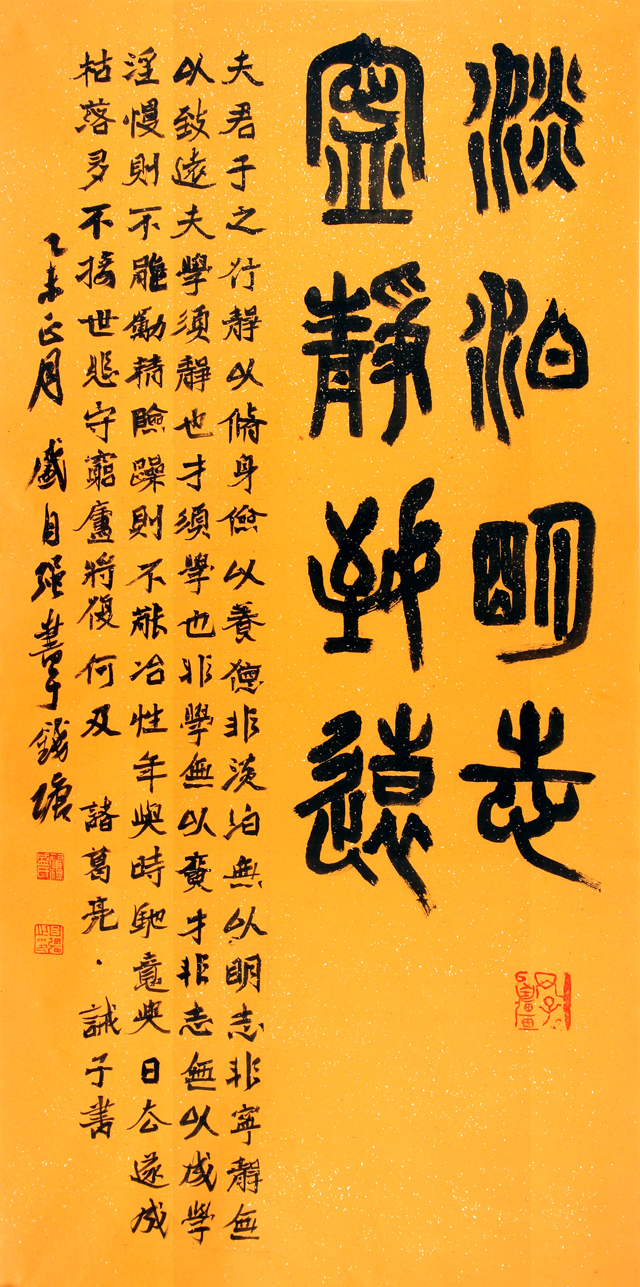 淡泊明志
寧靜致遠
夫君子之行靜以脩身儉以養德非淡泊無以明志非寧靜無
以致遠夫學須靜也才須學也非學無以廣才非志無以成學
淫慢則不能勵精險躁則不能冶性年與時馳意與日去遂成
枯落多不接世悲守窮廬將復何及 諸葛亮·誡子書
乙未正月 盛自强書于錢塘